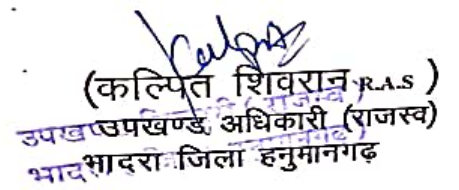 (कल्पित शिवरान R.A.S )
उपखण्ड अधिकारी (राजस्व)
भादरा जिला हनुमानगढ़